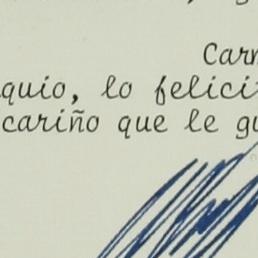 Carm
quio, lo felici
cariño que le gu